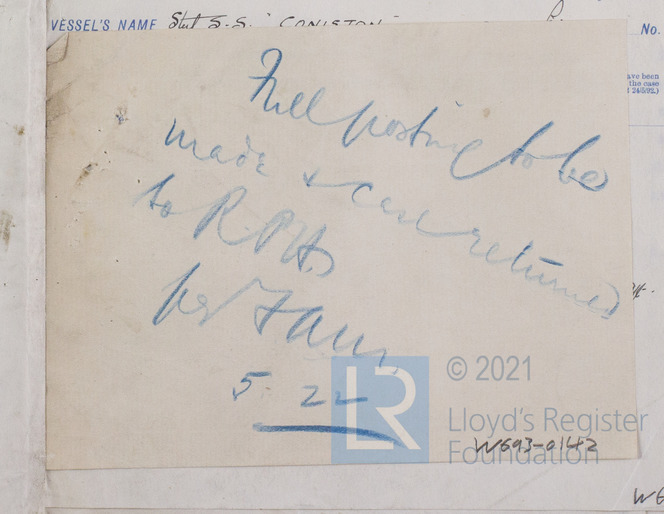 VESSEL'S NAME Stl S.S. "CONISTON"
No.
ave been
the case
24/3/92.)
Full posting to be
made & case returned
to R.P.H.
for
5. 22
LR
© 2021
Lloyd's Register
Foundation
W693-0142
W6